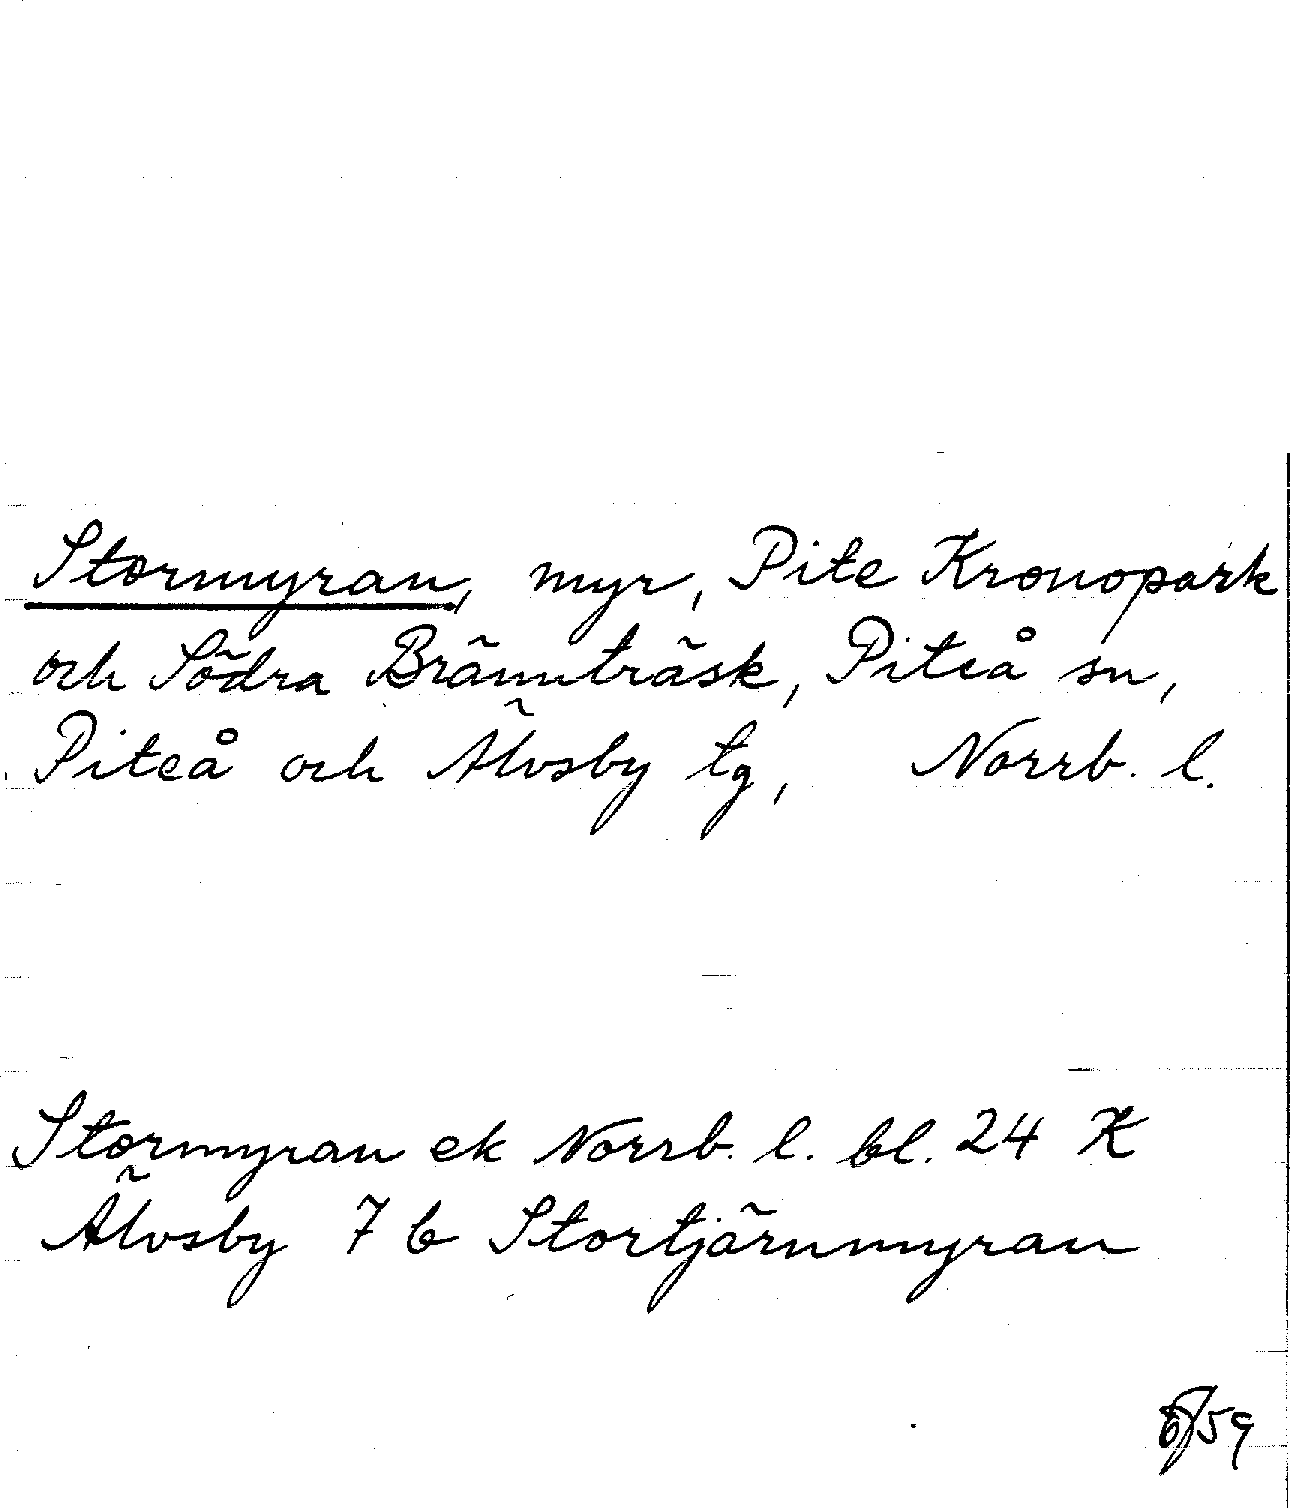 Stormyran, myr, Pite Kronopark
och Södra Brännträsk, Piteå sn,
Piteå och Älvsby tg, Norrb. l.
Stormyran ek Norrb. l. bl. 24 K
Älvsby 7 b Stortjärnmyran
59